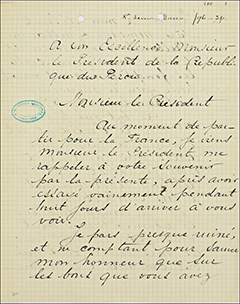 A Son Excellence Monsieur
le Président de la Republi
que du Perou
Monsieur le Président
Au moment de par-
tir pour la France, je viens
Monsieur le Président me
rappeler à votre Souvenir
par la présente, après avoir
essayé vainement pendant
huit jours d'arriver à vous
voir.
Je pars presque ruiné,
et ne comptant pour sauver
mon honneur que sur
les bont que vous avez